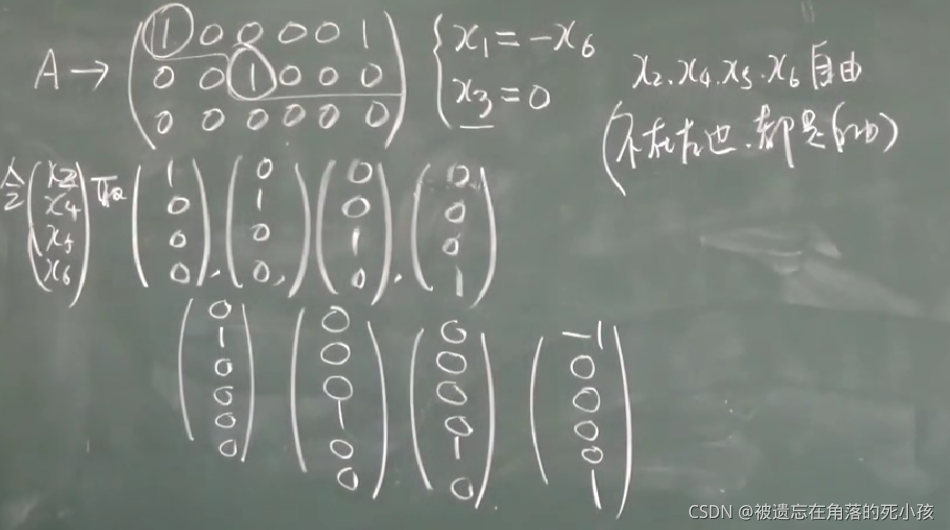 A → (1 0 0 0 0 1) { x₁ = -x₆
(0 0 1 0 0 0) x₃ = 0
(0 0 0 0 0 0)
x₂.x₄.x₅.x₆自由
(不在左边.都是自由)
令 (x₂ x₄ x₅ x₆) 取 (1 0 0 0), (0 1 0 0), (0 0 1 0), (0 0 0 1)
(0 1 0 0 0 0) (0 0 0 1 0 0) (0 0 0 0 1 0) (-1 0 0 0 0 1)
CSDN @被遗忘在角落的死小孩